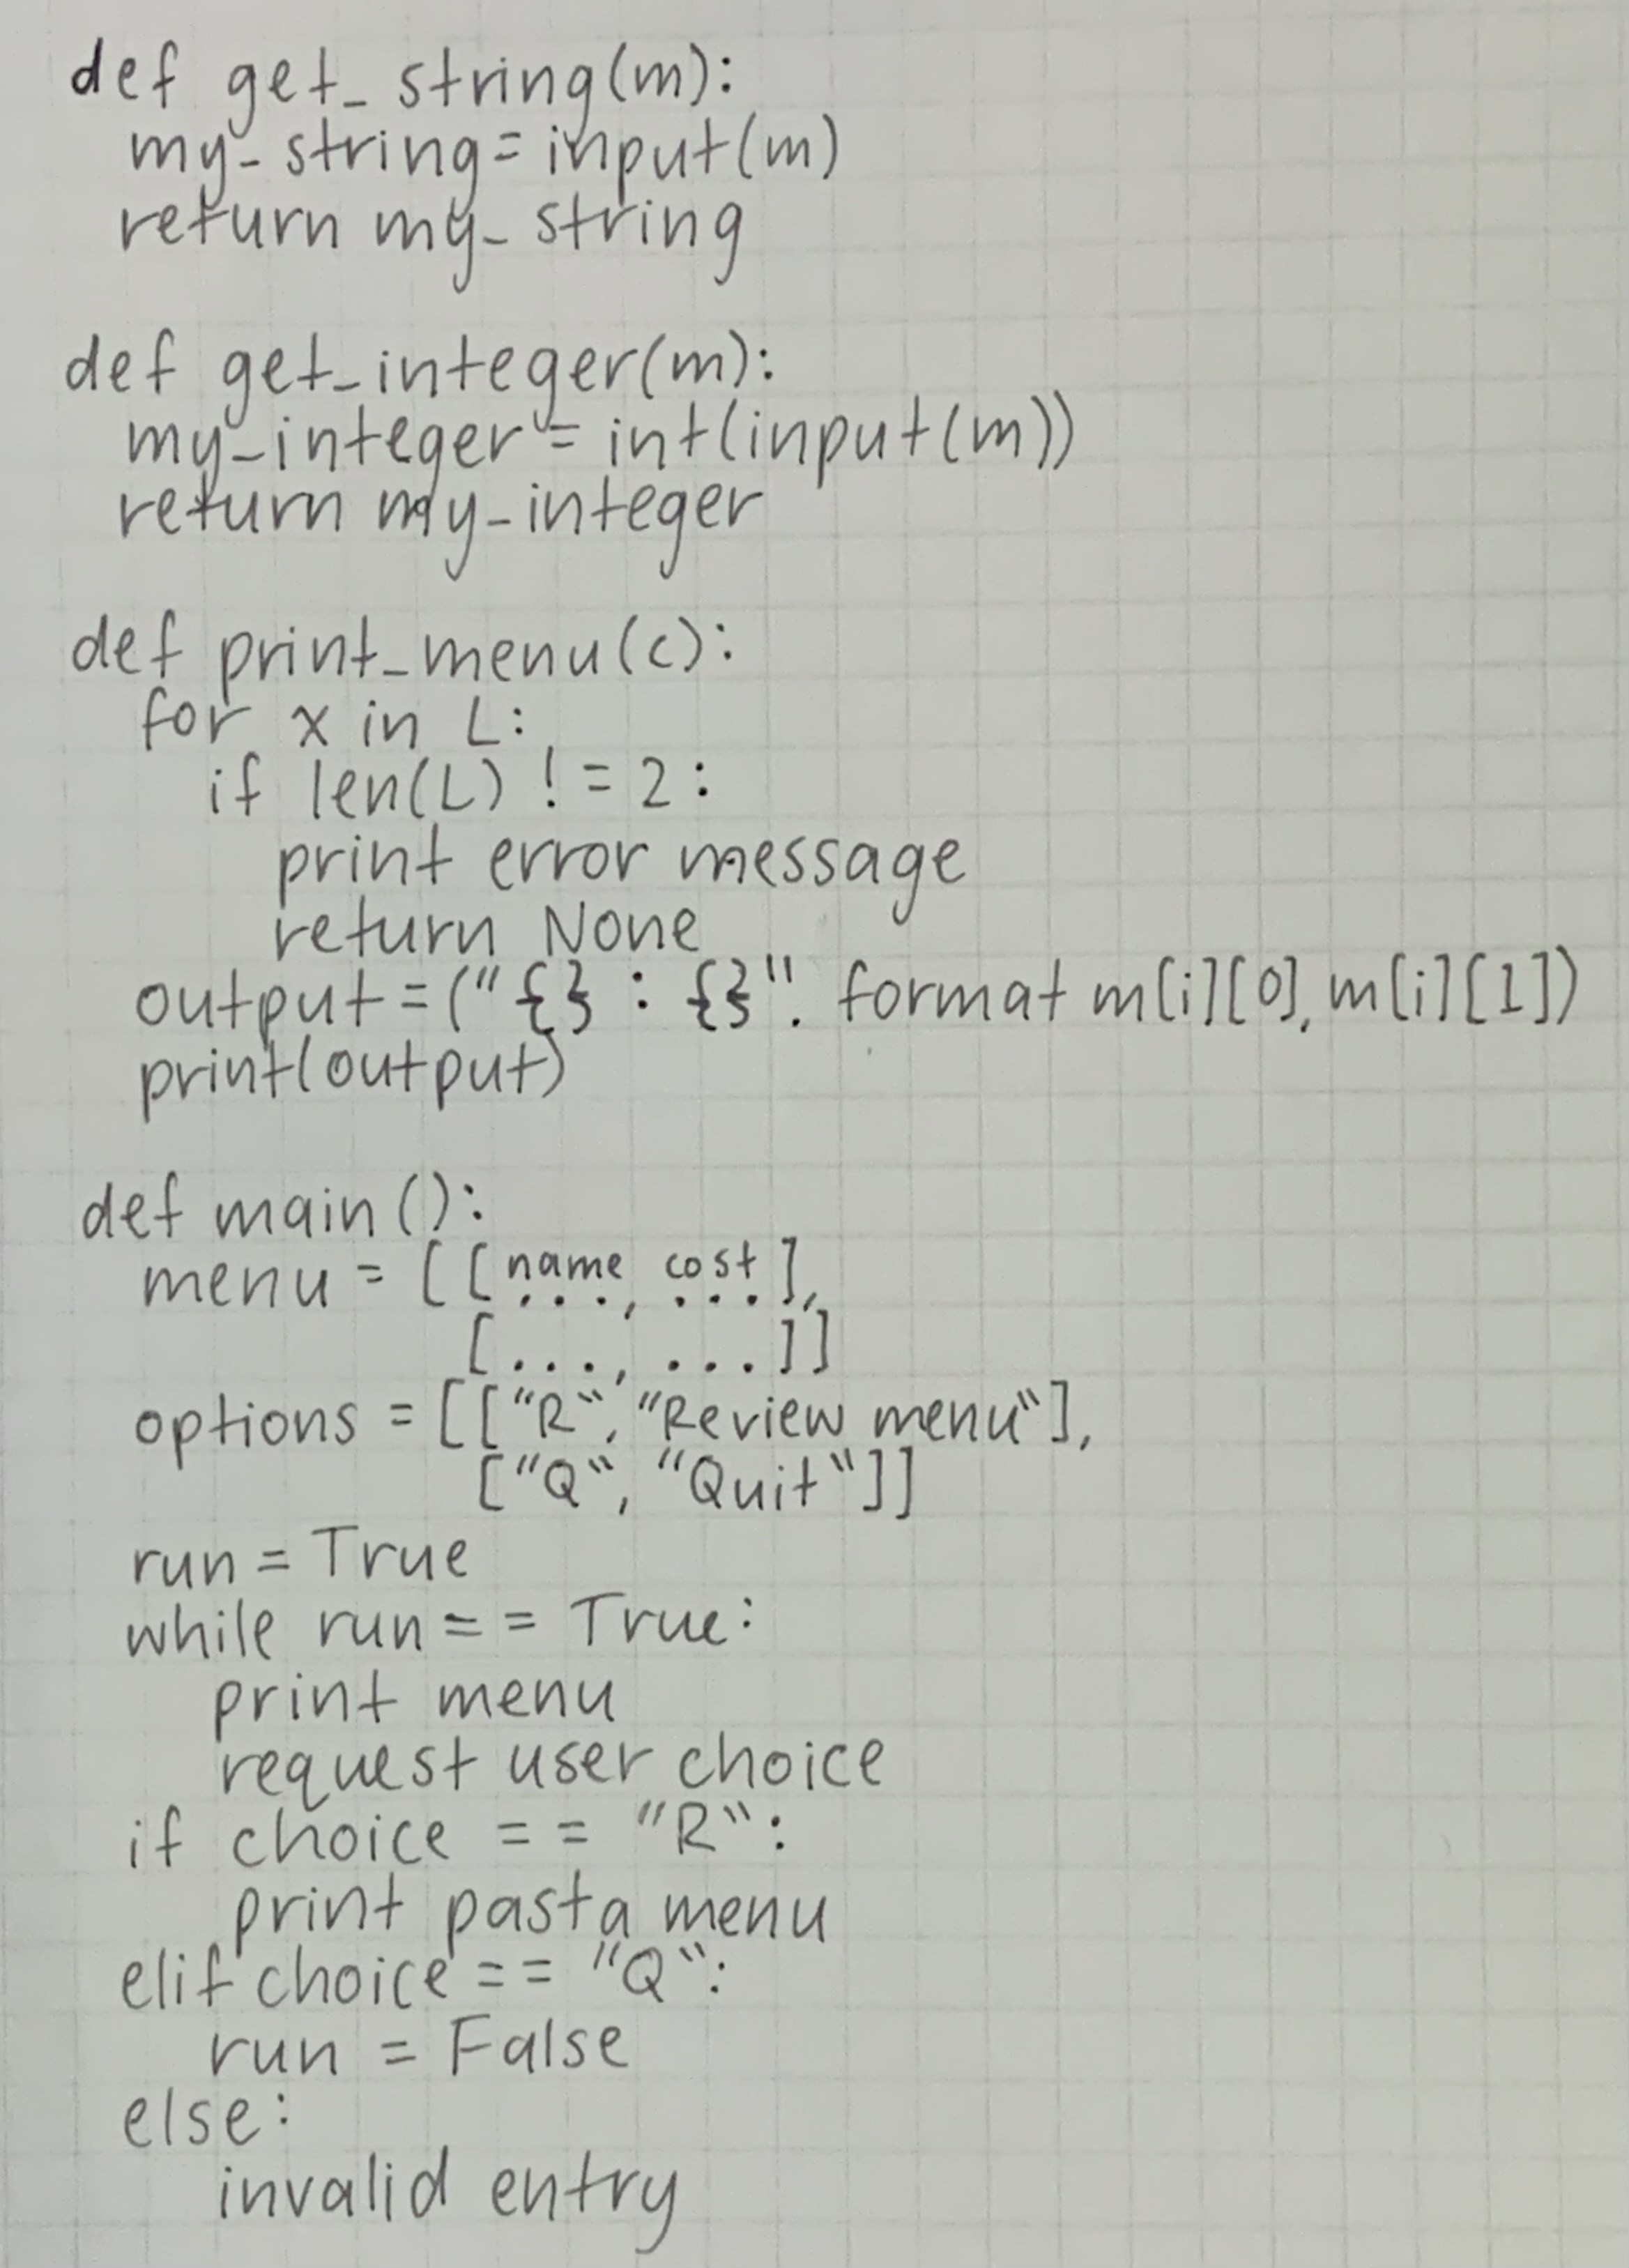 def get_string(m):
my_string = input(m)
return my_string
def get_integer(m):
my_integer = int(input(m))
return my_integer
def print_menu(c):
for x in L:
if len(L) != 2:
print error message
return None
output = ("{} : {}". format m[i][0], m[i][1])
print(output)
def main():
menu = [[name, cost],
..., ...
[..., ...]]
options = [["R", "Review menu"],
["Q", "Quit"]]
run = True
while run == True:
print menu
request user choice
if choice == "R":
print pasta menu
elif choice == "Q":
run = False
else:
invalid entry